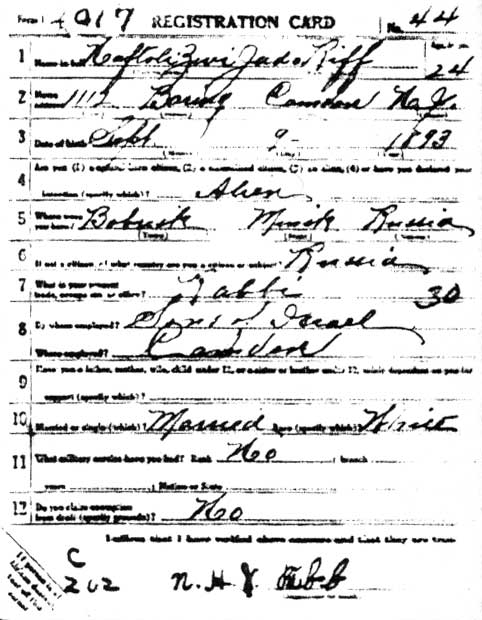 Form 1 4017 REGISTRATION CARD No. 44
1 Name in full Naftoli Zwi Riff
24
2 Home address 1112 Camden N.J.
3 Date of birth Sept 9 - 1893
4 Are you (1) a natural-born citizen, (2) a naturalized citizen, (3) an alien, (4) or have you declared your
intention (specify which)? Alien
5 Where were you born? Bobrusk Minsk Russia
(Town) (State) (Nation)
6 If not a citizen, of what country are you a citizen or subject? Russia
7 What is your present trade, occupation, or office? Rabbi 30
8 By whom employed? Sons of Israel
Where employed? Camden
9 Have you a father, mother, wife, child under 12, or a sister or brother under 12, solely dependent on you for
support (specify which)?
10 Married or single (which)? Married Race (specify which)? White
11 What military service have you had? Rank No branch
years Nation or State
12 Do you claim exemption from draft (specify grounds)? No
I affirm that I have verified above answers and that they are true.
C
202 N. H.